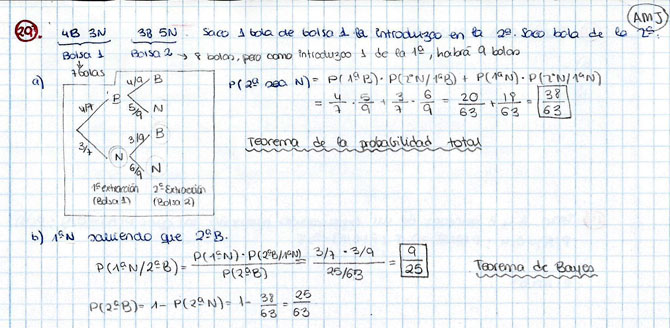 AMJ
29. 4B 3N 3B 5N. Saco 1 bola de bolsa 1 la introduzco en la 2ª. Saco bola de la 2ª.
Bolsa 1 Bolsa 2 → 8 bolas, pero como introduzco 1 de la 1ª, habrá 9 bolas
↓
7 bolas
a) P(2ª sea N) = P(1ªB)·P(2ªN/1ªB) + P(1ªN)·P(2ªN/1ªN)
= 4/7 · 5/9 + 3/7 · 6/9 = 20/63 + 18/63 = 38/63
4/7 B 4/9 B
5/9 N
3/7 N 3/9 B
6/9 N
1ª extracción 2ª Extracción
(Bolsa 1) (Bolsa 2)
Teorema de la probabilidad total
b) 1ªN sabiendo que 2ªB.
P(1ªN/2ªB) = P(1ªN)·P(2ªB/1ªN) / P(2ªB) = 3/7 · 3/9 / 25/63 = 9/25
Teorema de Bayes
P(2ªB) = 1 - P(2ªN) = 1 - 38/63 = 25/63